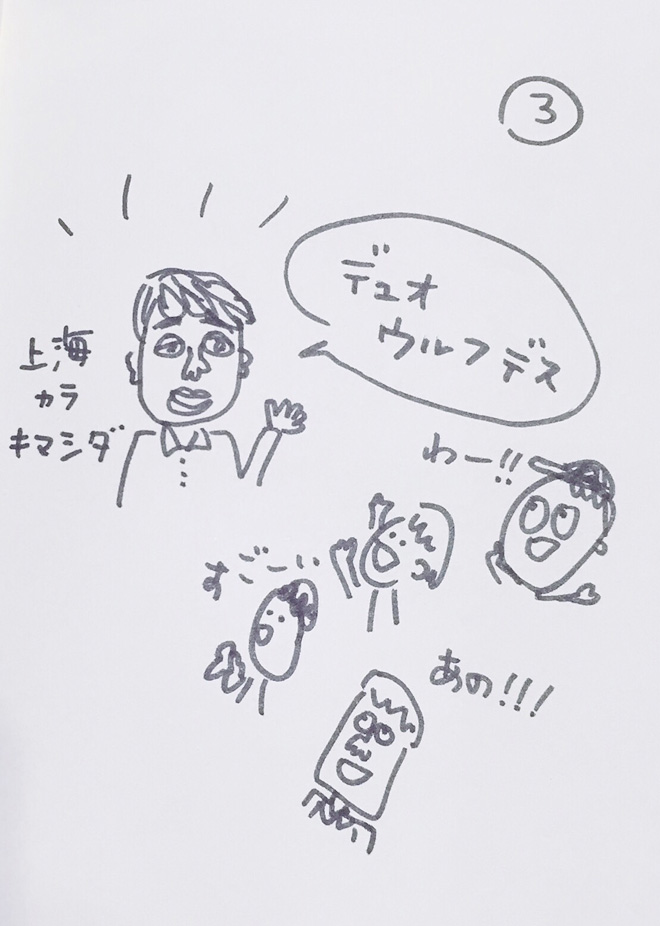 ③
デュオ
ウルフデス
上海
カラ
キマシダ
わー!!
すごーい
あの!!!